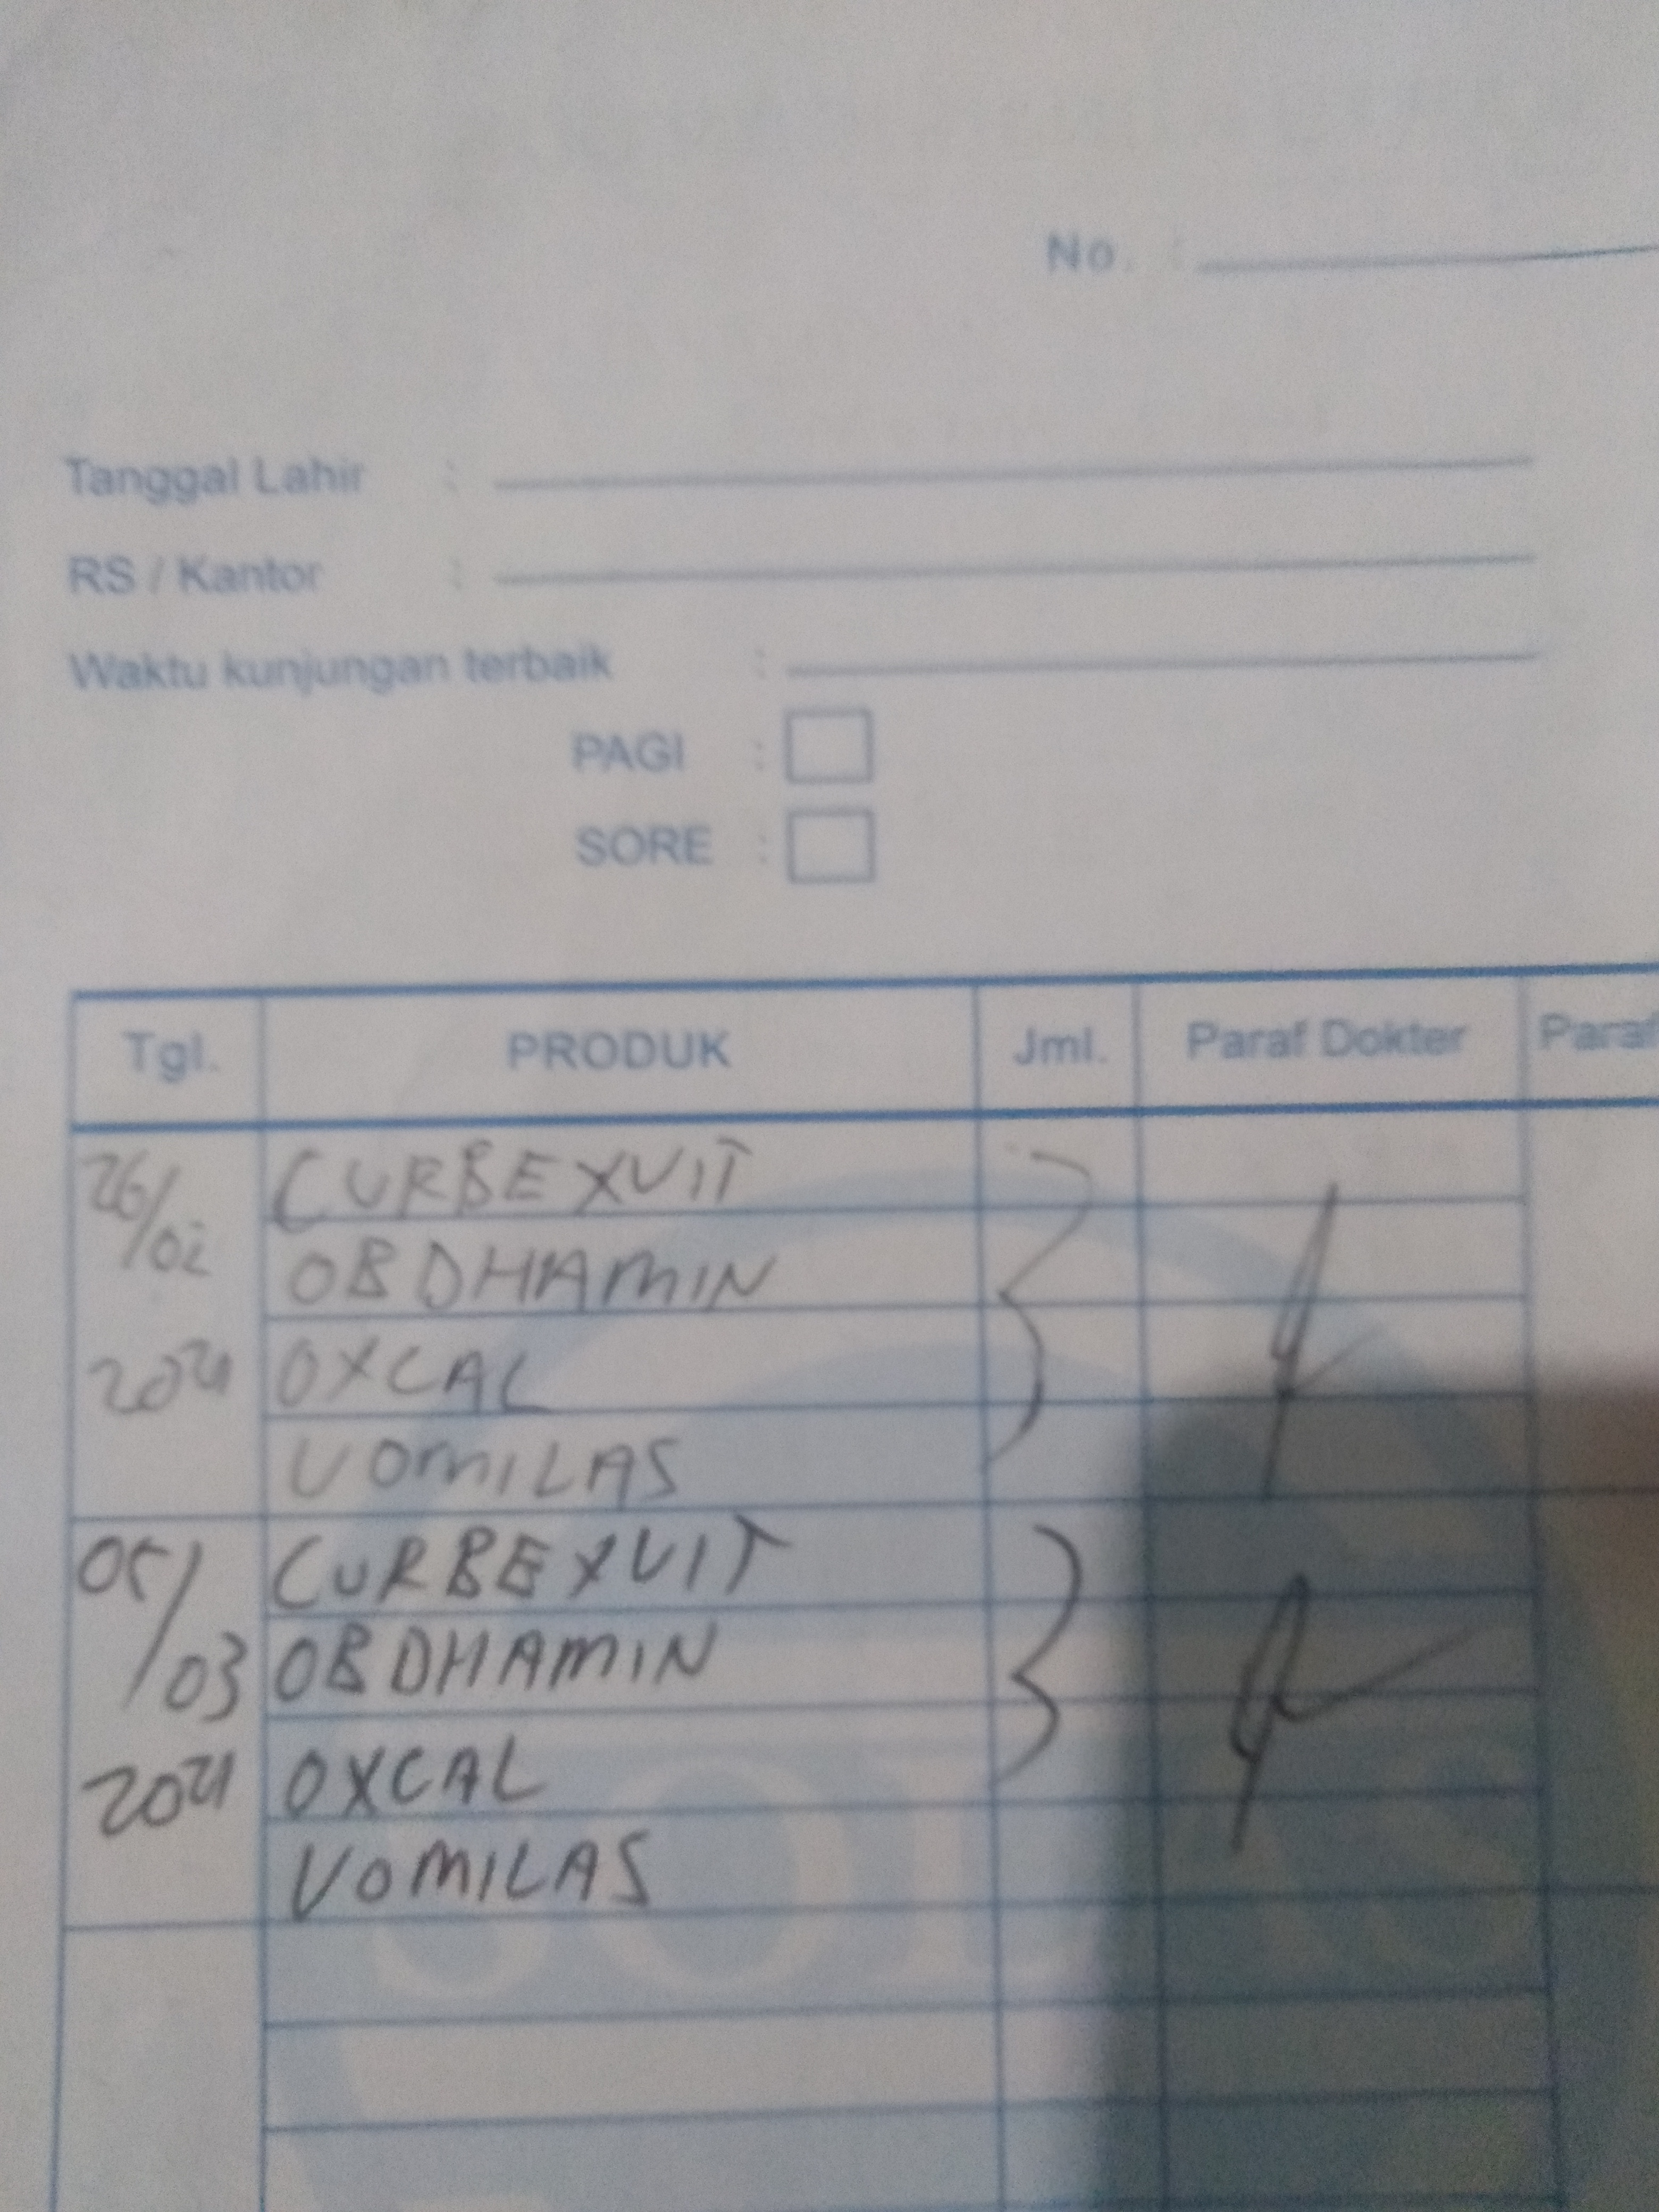 No. :
Tanggal Lahir :
RS / Kantor :
Waktu kunjungan terbaik :
PAGI :
SORE :
Tgl. PRODUK Jml. Paraf Dokter Paraf
26/02 CURBEXVIT
OBDHAMIN
2021 OXCAL
VOMILAS
05/03 CURBEXVIT
OBDHAMIN
2021 OXCAL
VOMILAS